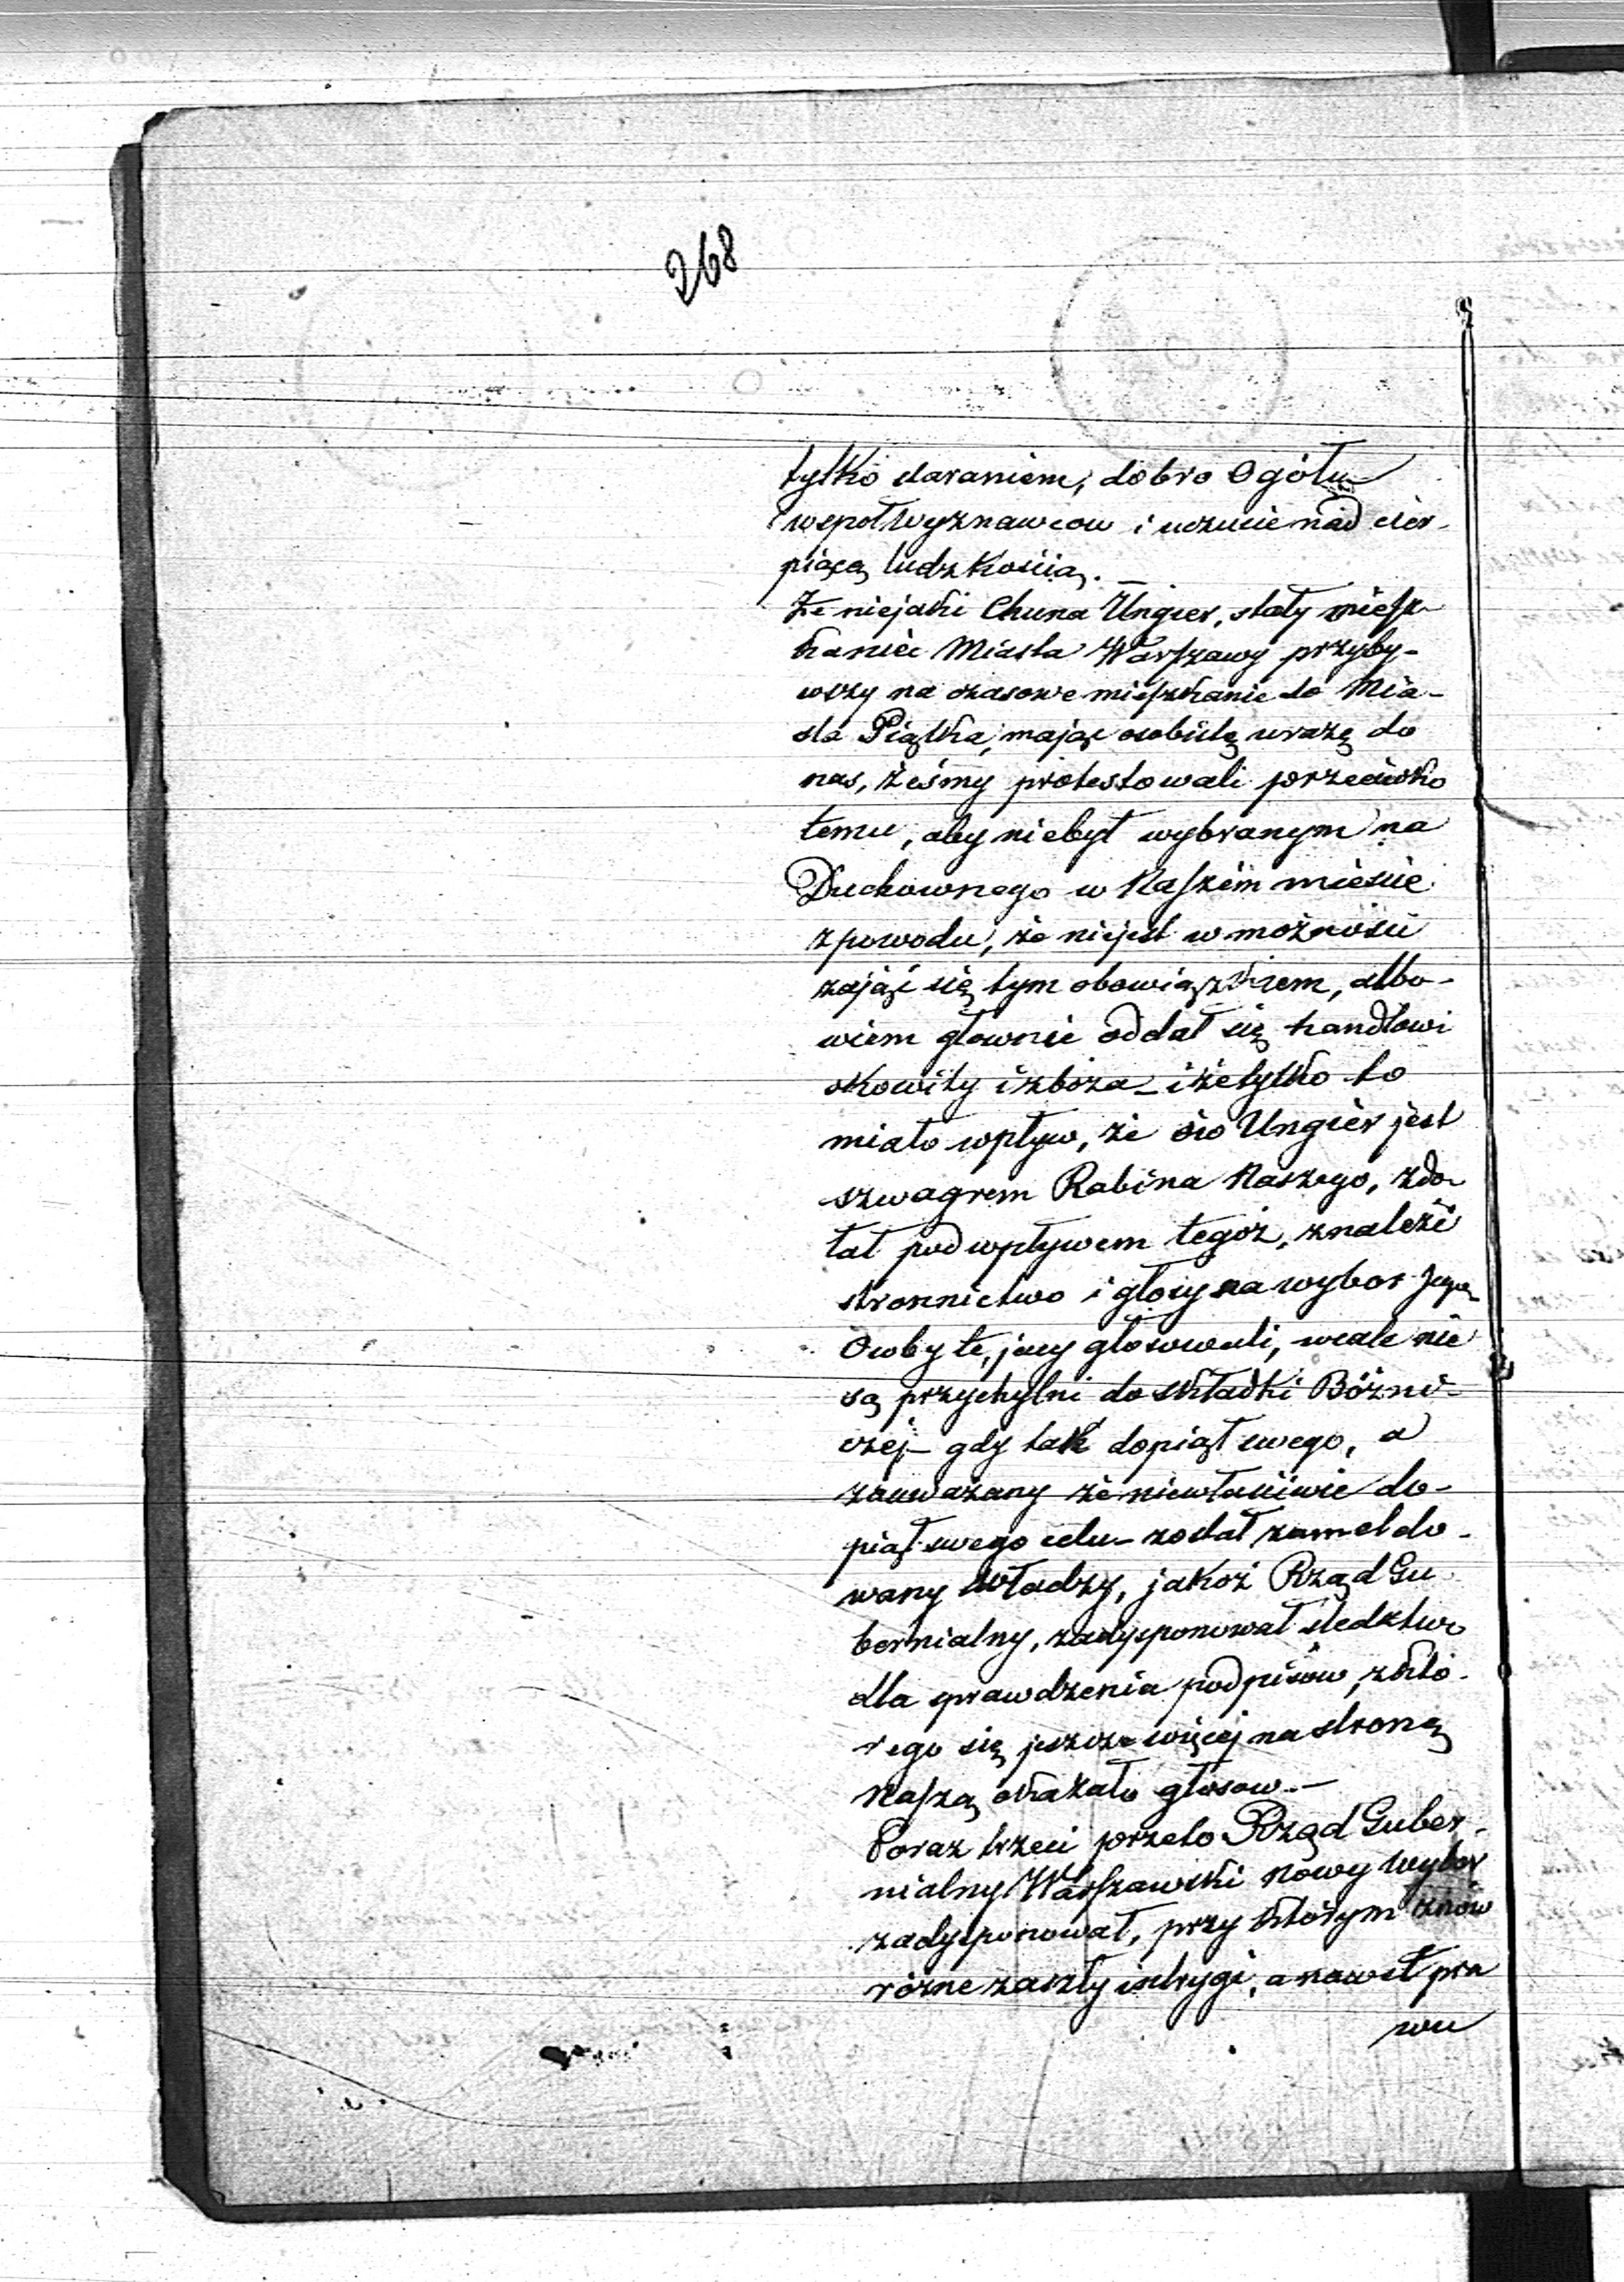 268
tylko staraniem, dobro Ogółu
wspołwyznawcow i uczucie nad cier-
piącą ludzkością. —
Że niejaki Chuna Ungier, stały miesz-
kaniec Miasta Warszawy przyby-
wszy na czasowe mieszkanie do Mia-
sta Piątka, mając osobistą urazę do
nas, żeśmy protestowali przeciwko
temu, aby niebył wybranym na
Duchownego w Naszém mieście
z powodu, że niejest w możności
zająć się tym obowiązkiem, albo-
wiem głownie oddał się handlowi
okowity i zboża – i że tylko to
miało wpływ, że ów Ungier jest
szwagrem Rabina Naszego, zdo-
łał pod wpływem tegoż, znaleźć
stronnictwo i głosy na wybor Jego
Osoby te, jacy głosowali, wcale nie
są przychylni do składki Bóżni-
czej – gdy tak dopiął swego, a
zauważany że niewłaściwie do-
piął swego celu – został zameldo-
wany władzy, jakoż Rząd Gu-
bernialny, zadysponował sledztwo
dla sprawdzenia podpisów, z któ-
rego się jeszcze więcej na stronę
Naszą okazało głosow. —
Poraz trzeci przeto Rząd Guber-
nialny Warszawski nowy wybor
zadysponował, przy którym znów
różne zaszły intrygi, a nawet pra
wu